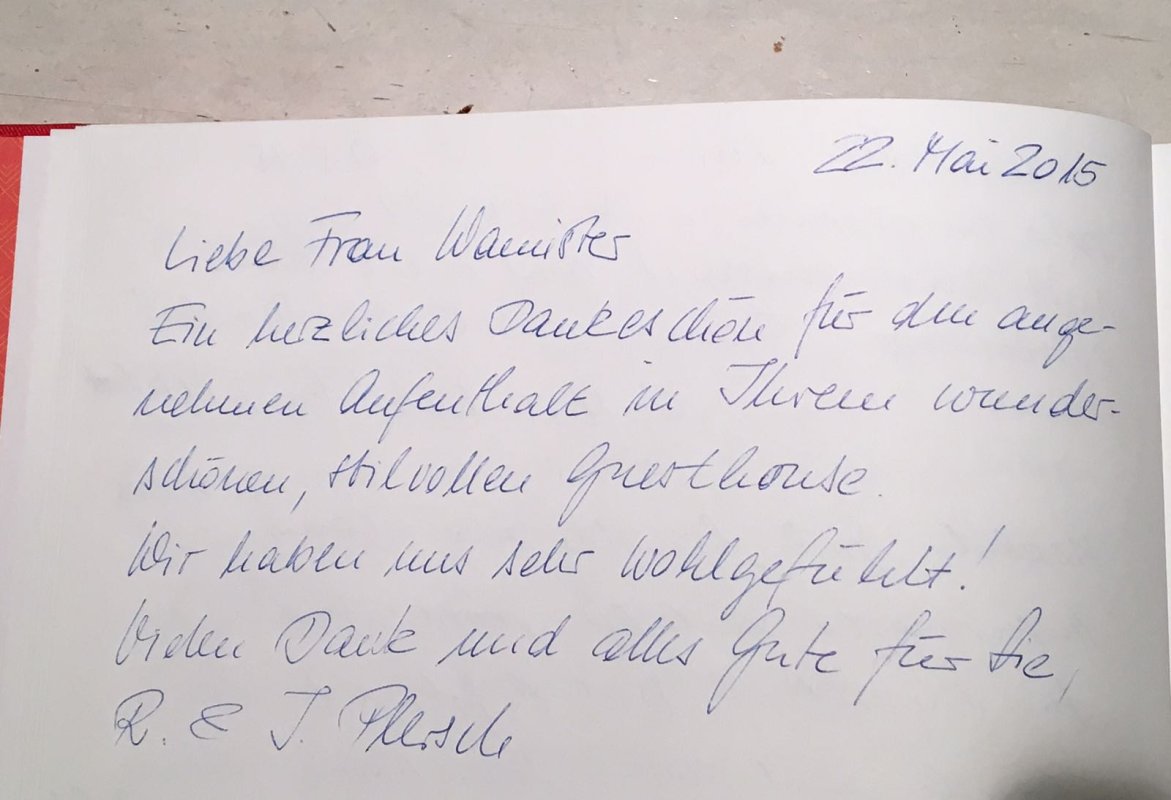 22. Mai 2015
Liebe Frau
Ein herzliches Dankeschön für den ange-
nehmen Aufenthalt in Ihrem wunder-
schönen, stilvollen Guesthouse.
Wir haben uns sehr wohlgefühlt!
Vielen Dank und alles Gute für Sie,
R. & J.